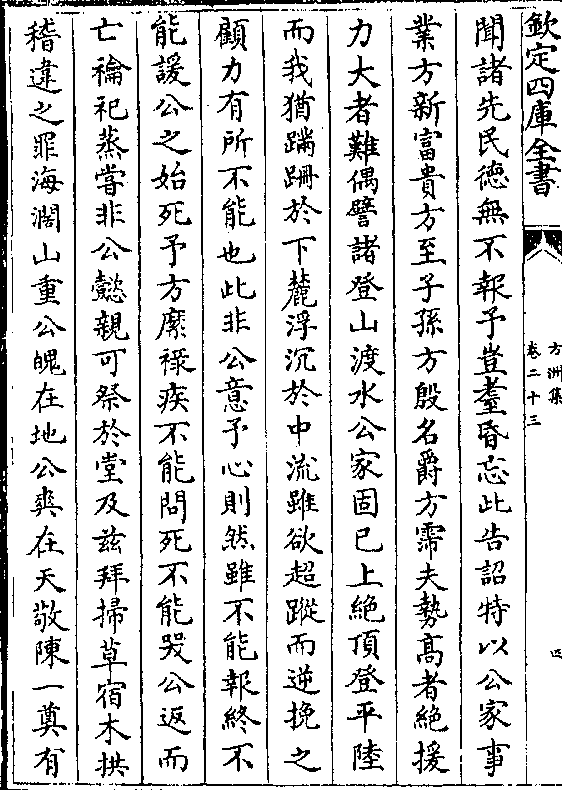 欽定四庫全書
方洲集
卷二十三
四
聞諸先民德無不報予豈耋昏忘此告詔特以公家事
業方新富貴方至子孫方殷名爵方霈夫勢髙者絶援
力大者難偶譬諸登山渡水公家固已上絶頂登平陸
而我猶蹣跚於下麓浮沉於中流雖欲超蹤而逆挽之
顧力有所不能也此非公意予心則然雖不能報終不
能諼公之始死予方縻祿疾不能問死不能哭公返而
亡禴祀蒸嘗非公懿親可祭於堂及兹拜掃草宿木拱
稽違之罪海濶山重公魄在地公爽在天敬陳一奠有